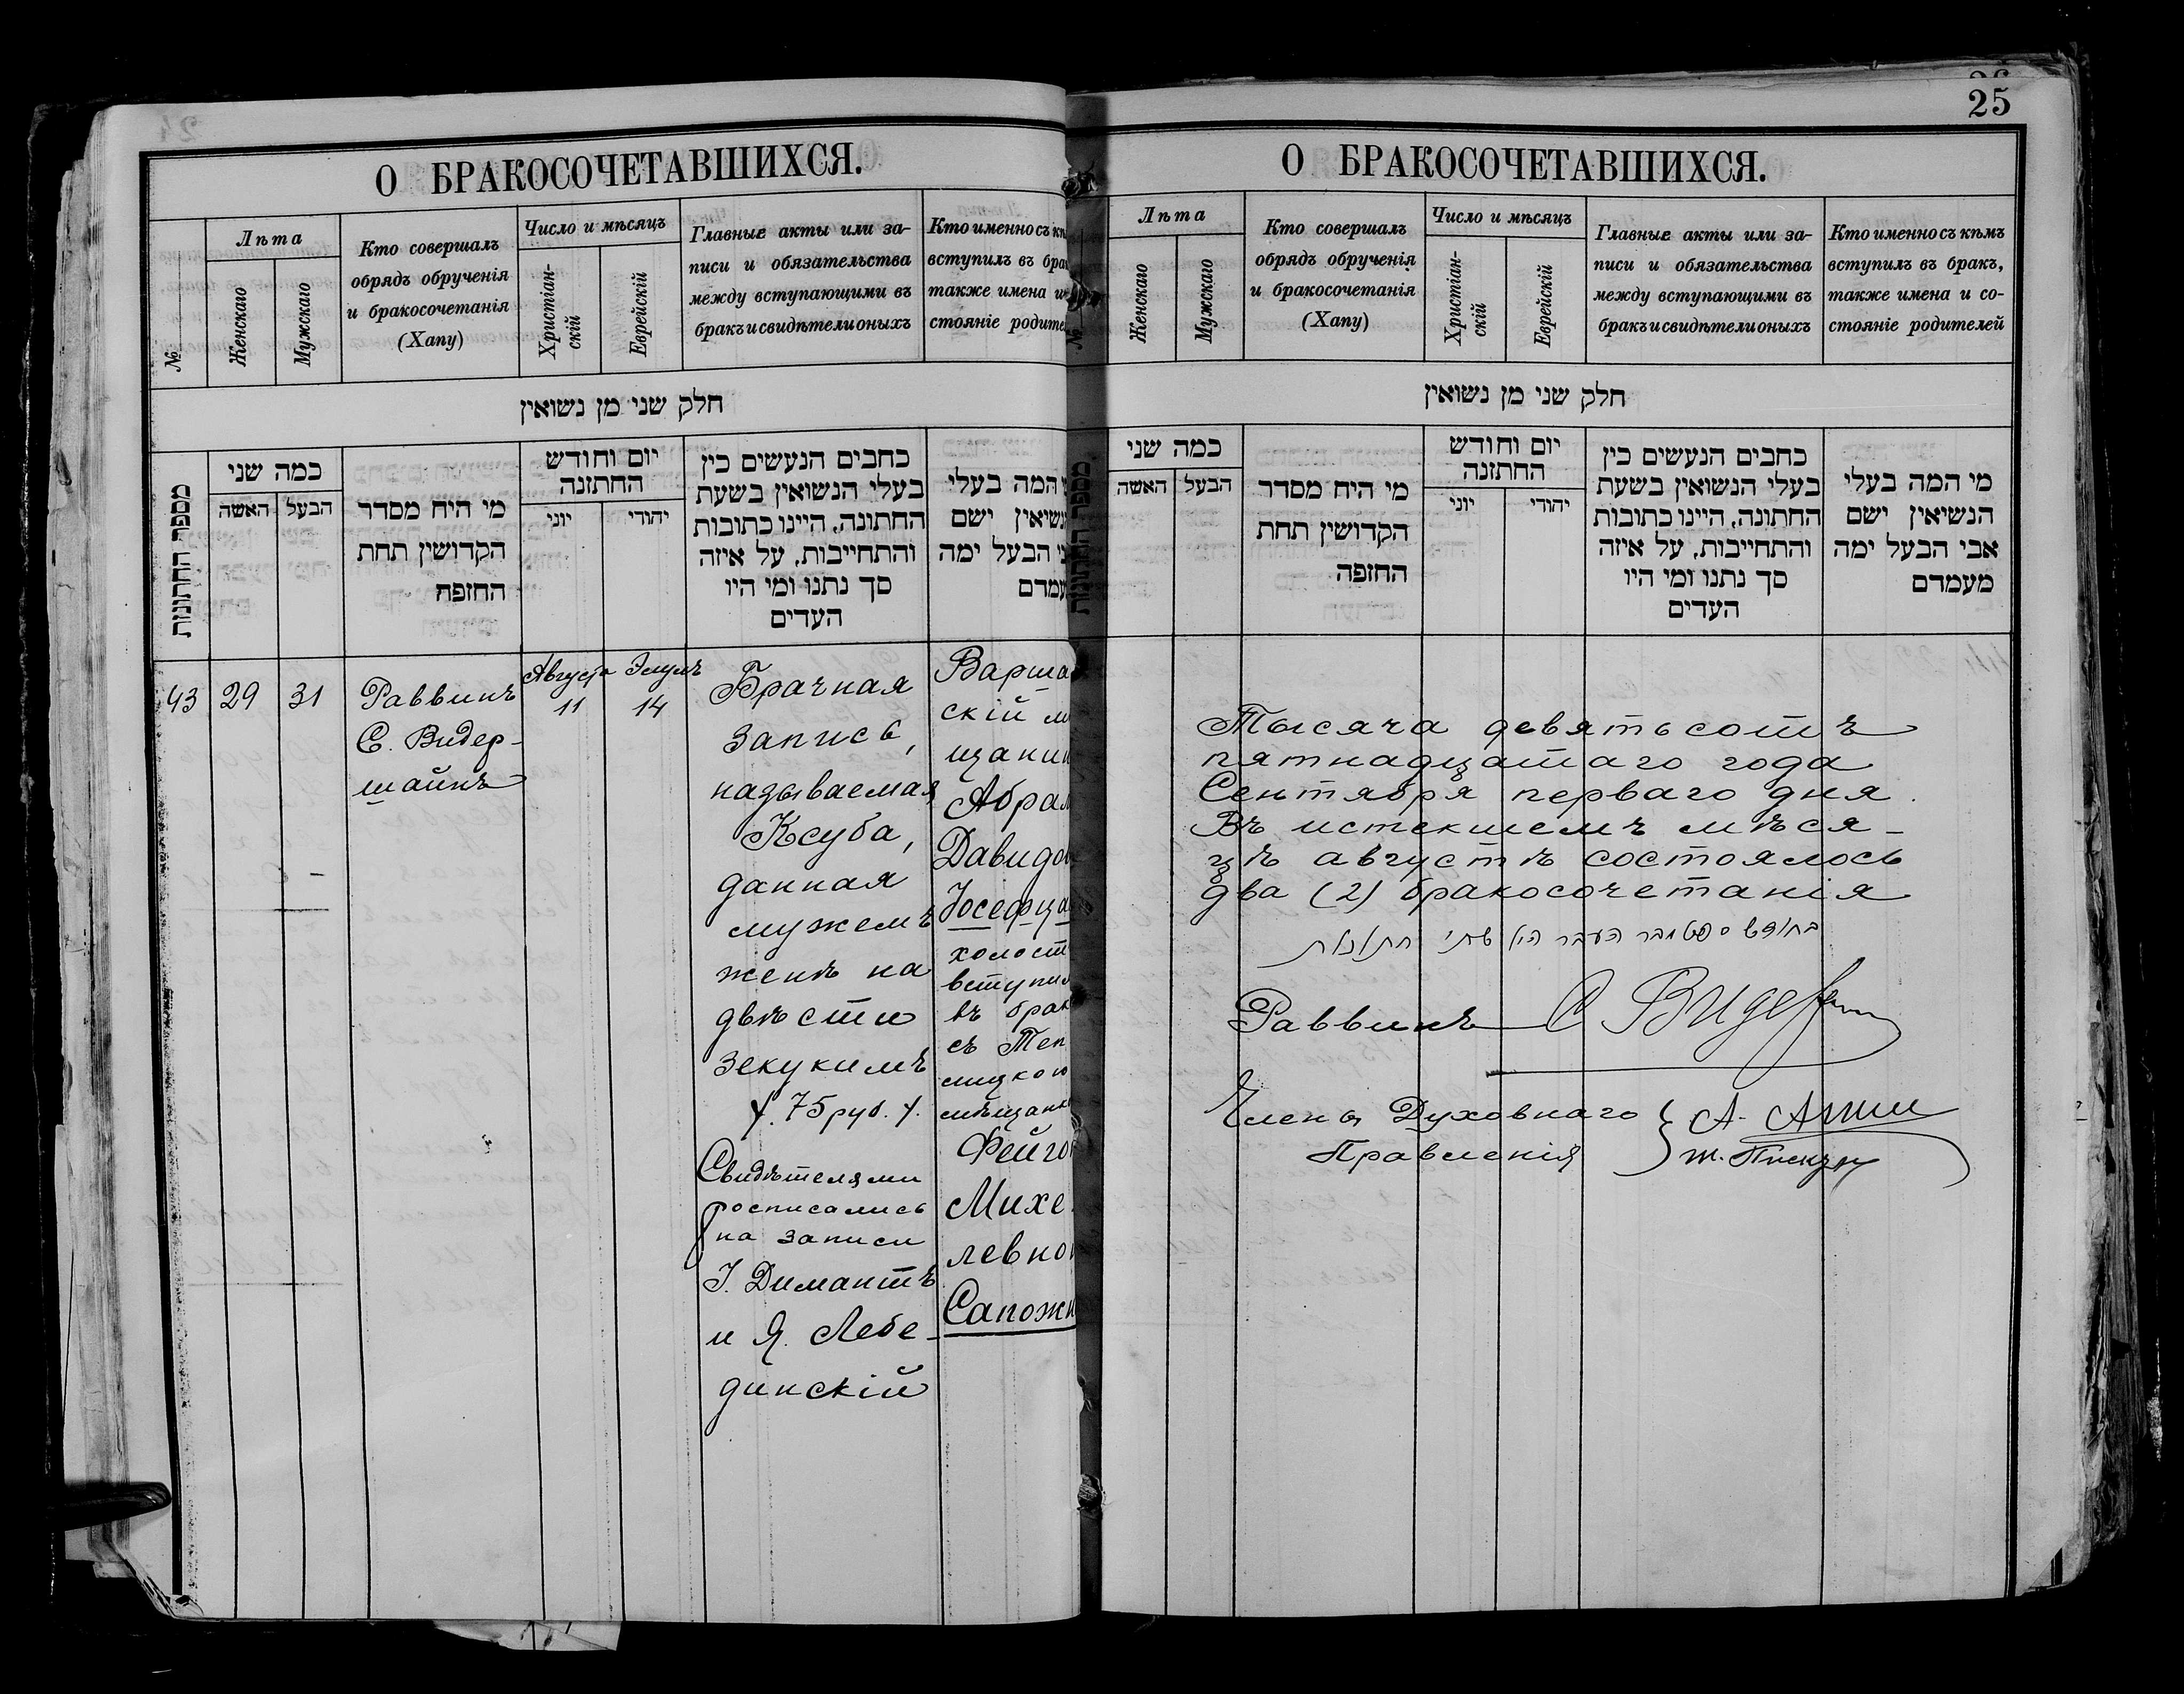 О БРАКОСОЧЕТАВШИХСЯ.
№
Лѣта
Женскаго
Мужскаго
Кто совершалъ
обрядъ обрученія
и бракосочетанія
(Хапу)
Число и мѣсяцъ
Христіан-
скій
Еврейскій
Главные акты или за-
писи и обязательства
между вступающими въ
бракъ и свидѣтели оныхъ
Кто именно съ
вступилъ въ
также имена
стояніе
חלק שני מן נשואין
מספר החתונות
כמה שני
האשה
הבעל
מי היח מסדר
הקדושין תחת
החופה
יום וחודש
החתונה
יוני
יהודי
כחבים הנעשים כין
בעלי הנשואין בשעת
החתונה, היינו כתובות
והתחייבות, על איזה
סך נתנו ומי היו
העדים
המה בעלי
ישם
הבעל ימה
43
29
31
Раввинъ
С. Видер-
шайнъ
Августа
11
Элулъ
14
Брачная
запись,
называемая
Ксуба,
данная
мужемъ
женѣ на
двѣсти
зекукимъ
75 руб.
Свидѣтелями
росписались
на записи
І. Димантъ
и Я. Лебе-
динскій
Варша
скій м
щанин
Абрам
Давидов
Іосефца
холост
вступил
въ брак
съ Теп
лицкою
мѣщанк
Фейгой
Михе
левной
Сапожн
25
О БРАКОСОЧЕТАВШИХСЯ.
Лѣта
Женскаго
Мужскаго
Кто совершалъ
обрядъ обрученія
и бракосочетанія
(Хапу)
Число и мѣсяцъ
Христіан-
скій
Еврейскій
Главные акты или за-
писи и обязательства
между вступающими въ
бракъ и свидѣтели оныхъ
Кто именно съ кѣмъ
вступилъ въ бракъ,
также имена и со-
стояніе родителей
חלק שני מן נשואין
כמה שני
האשה
הבעל
מי היח מסדר
הקדושין תחת
החופה
יום וחודש
החתונה
יוני
יהודי
כחבים הנעשים כין
בעלי הנשואין בשעת
החתונה, היינו כתובות
והתחייבות, על איזה
סך נתנו ומי היו
העדים
מי המה בעלי
הנשיאין ישם
אבי הבעל ימה
מעמדם
Тысяча девятьсотъ
пятнадцатаго года
Сентября перваго дня.
Въ истекшемъ мѣся-
цѣ августѣ состоялось
два (2) бракосочетанія
העבר היו שתי חתונות
Раввинъ С Видер
Члены Духовнаго
Правленія